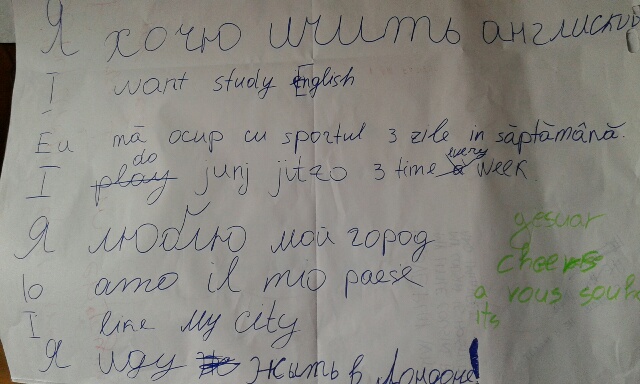 Я хочю учить англиский
I want study English
Eu mă ocup cu sportul 3 zile in săptămână.
I do junj jitzo 3 time every week
Я люблю мой город
gesuar
Io amo il mio paese
cheers
a vous souh
I like My city
its
Я иду жить в Лондоне!